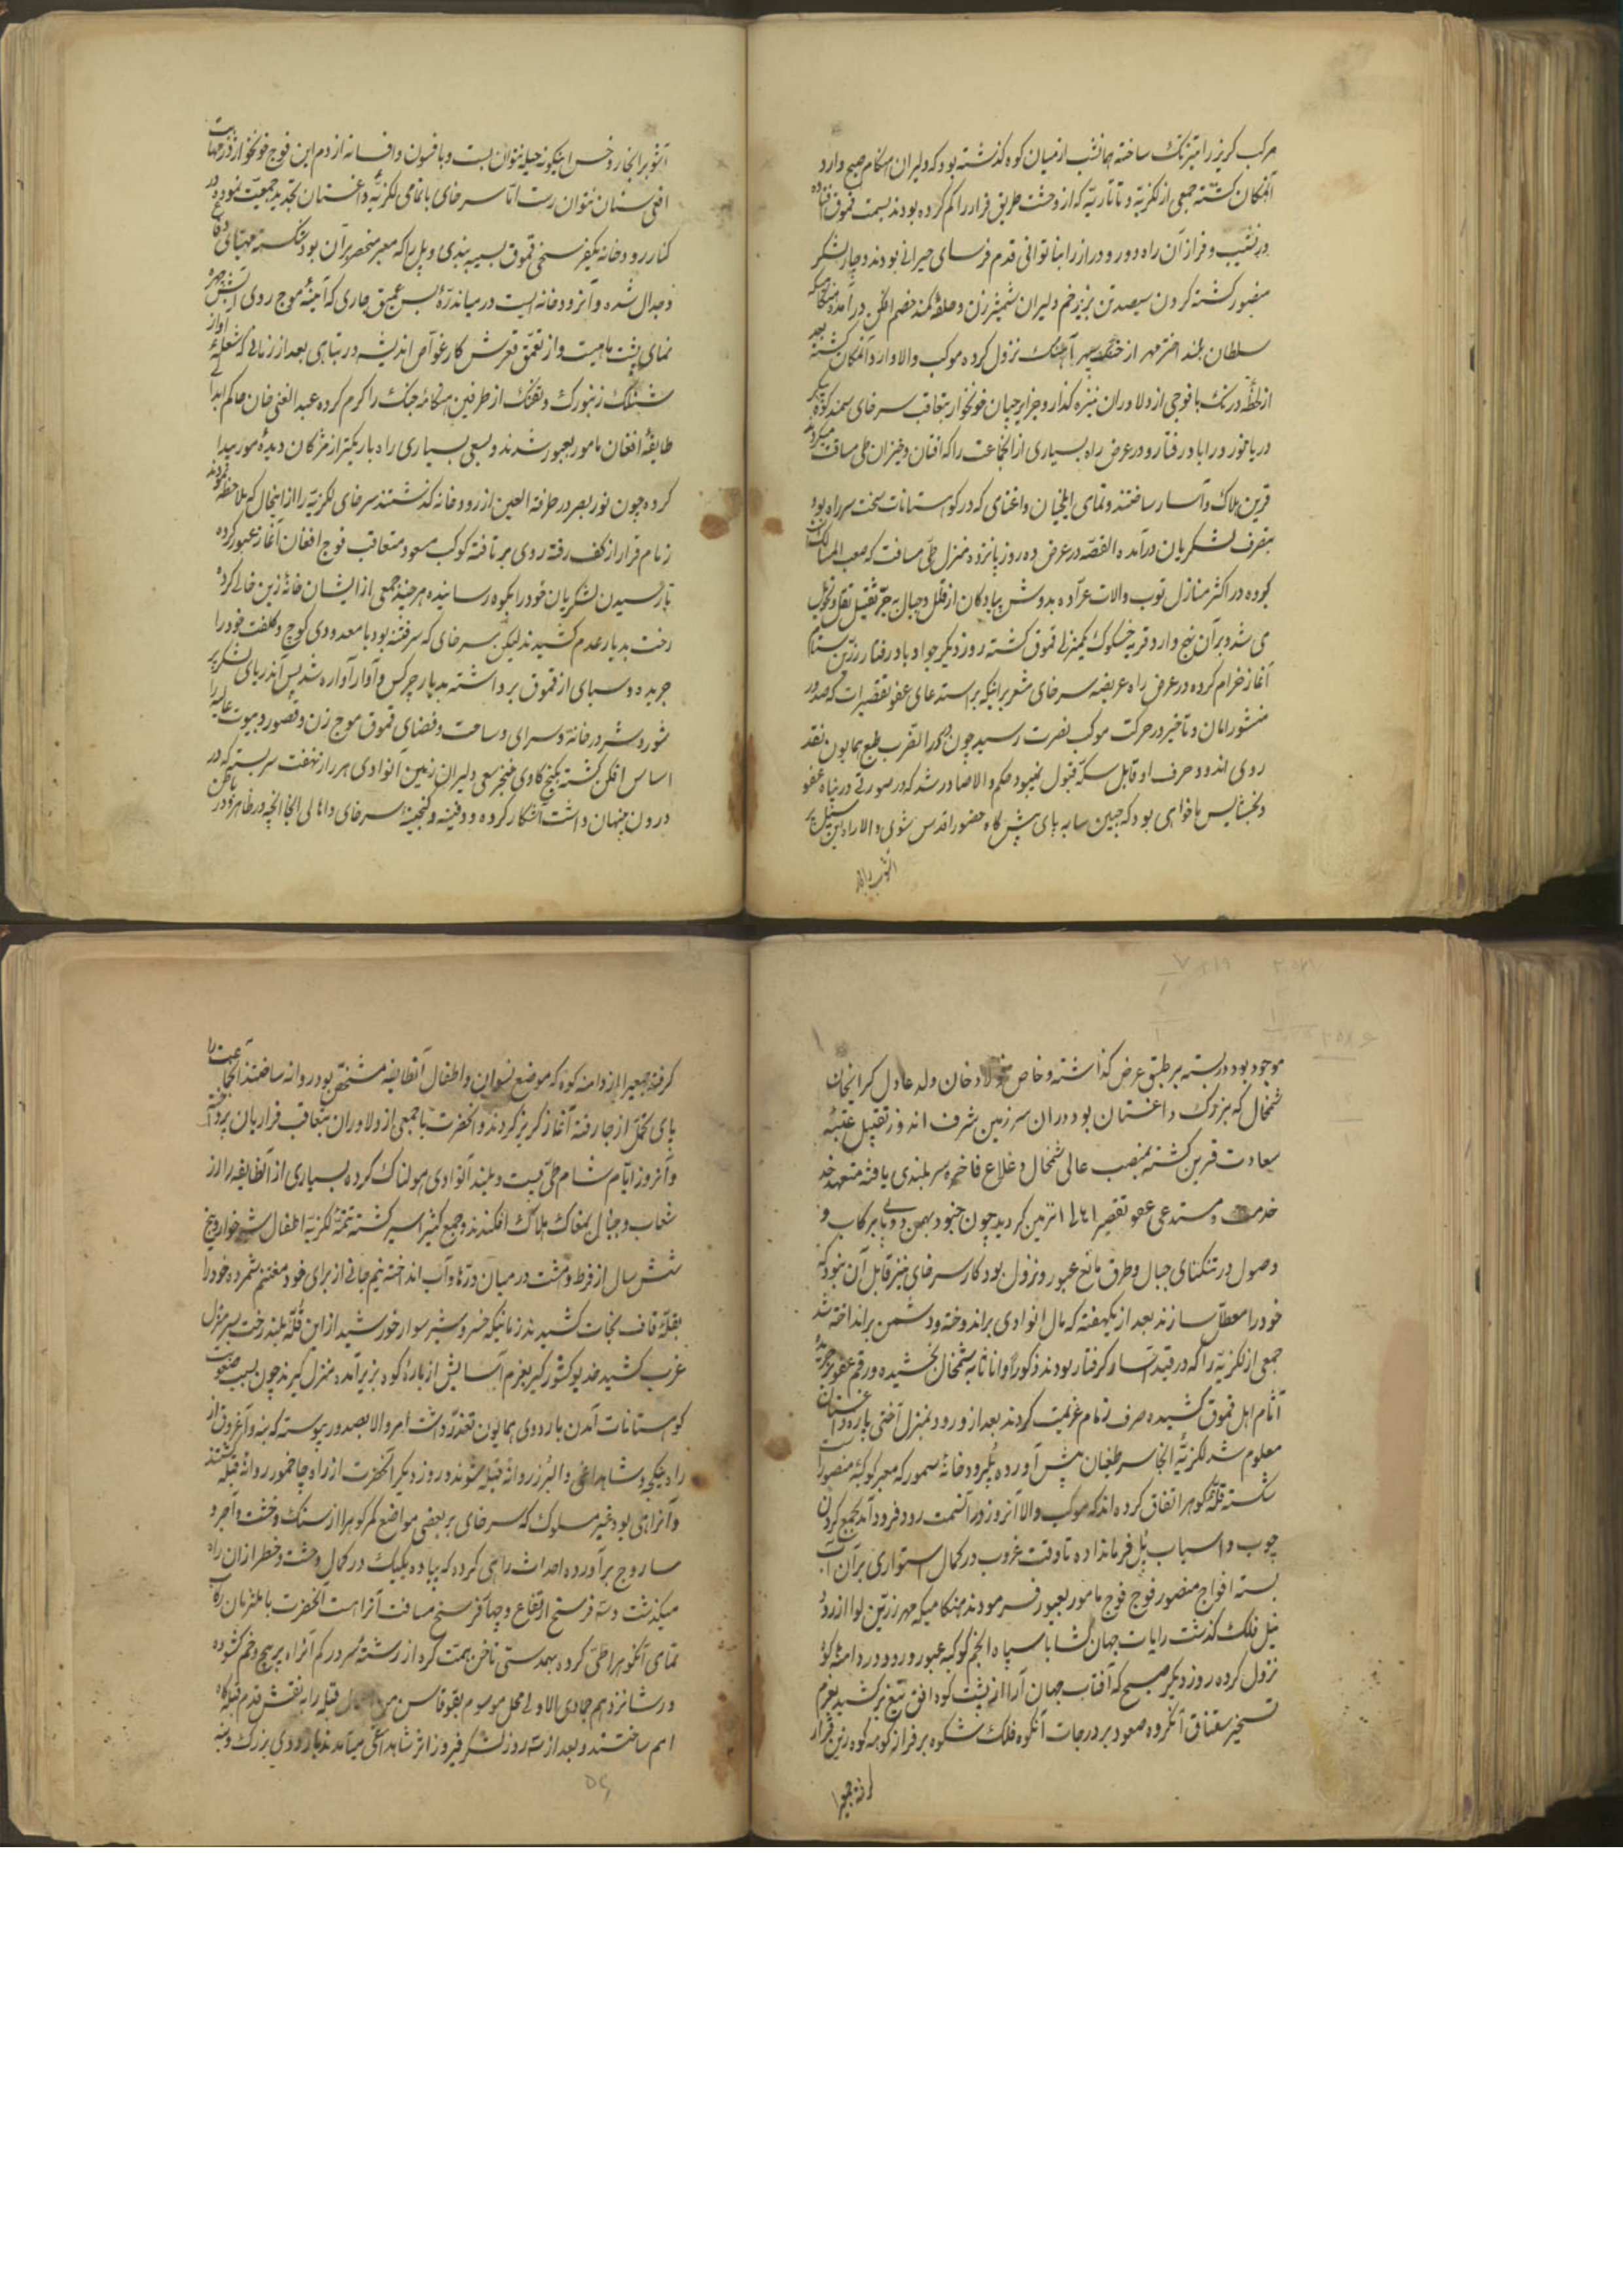 مرکب کریز را تیزتک ساخته همانشب از میان کوه گذشته بود که دلیران هنگام صبح وارد
آنمکان گشته جمعی از لکزیه و تاتاریه که از وحشت طریق فرار را کم کرده بودند بسمت قموق افتاده
در نشیب و فراز آن راه دور و دراز را بناتوانی قدم فرسای حیرانی بودند دچار لشکر
منصور گشته کردن سیصد تن بزیر خم دلیران شمشیر زن و حلقه کمند خصم افکن در آمد هنگامیکه
سلطان بلند اختر مهر از خنک سپهر آهنک نزول کرده موکب والا وارد آنمکان گشته بعد
از لحظه درنک با فوجی از دلاوران نیزه کذار و جزایرچیان خونخوار بتعاقب سرخای سمند کوه پیکر
دریا نورد را باد رفتار و در عرض راه بسیاری از انجماعت را که افتان و خیزان طی مسافت میکردند
قرین هلاک و اسار ساختند و تمامی ایلخیان و اغنامی که در کوهستانات سخت سر راه بود
بتصرف لشکریان در آمد القصه در عرض ده روز پانزده منزل طی مسافت که صعب المسالک
بوده در اکثر منازل توپ و الات عراده بدوش پیادگان از قلل و جبال بجر ثقیل نقل و تحویل
می شد و بر آن نهج وارد قریه خسکوک یکمنزلی قموق گشته روز دیگر جواد باد رفتار زرین ستام
آغاز خرام کرده در عرض راه عریضه سرخای مشعر بر اینکه بر استدعای عفو تقصیرات که صدور
منشور امان و تأخیر در حرکت موکب نصرت رسید چون در دار القرب طبع همایون نقد
روی اندود حرف او قابل سکه قبول نمیبود حکم والا صادر شد که در صورتی در پناه عفو
و بخشایش ما خواهی بود که جبین سای پای پیش گاه حضور اقدس شوی و الا راه این سیل پر
آشوب را بانجار
آشوب را بخار و خس اینگونه حیله نتوان بست و بافسون و افسانه از دم این فوج خونخوار اژدر مهابت
افعی سنان نتوان رست اما سرخای با تمامی لکزیه داغستان تجدید جمعیت نموده در
کنار رودخانه یکفرسخی قموق بسیبه بندی و پل را که معبر منحصر بر آن بود شکسته مهیای دفاع
و جدال شده و آنرودخانه ایست در میان دره بس عمیق جاری که آینه موج روی آبش چهره
نمای پشت ماهیست و از تعمق قعرش کار غواص اندیشه در تباهی بعد از زمانی که شعله آواز
شلنک زنبورک و تفنک از طرفین هنگامه جنک را کرم کرده عبد الغنی خان حاکم ابدالی
طایفه افغان مامور بعبور شدند و بسعی بسیاری راه باریکتر از مژکان دیده مور پیدا
کرده چون نور بصر در طرفة العین از رودخانه گذشتند سرخای لکزیه را از اینحال که ملاحظه نمودند
زمام قرار از کف رفته روی بر تافته کوکب مسعود متعاقب فوج افغان آغاز عبور کرده
تا رسیدن لشکریان خود را بکوه رسانیده هر چند جمعی از ایشان خانه زین خالی کرده
رخت بدیار عدم کشیدند لیکن سرخای که سرفتنه بود با معدودی کوچ و کلفت خود را
جریده و سبای از قموق برداشته بدیار چرکس و آوار آواره شد پس آندریای لشکر پر
شور و شر در خانه و سرای و ساحت و فضای قموق موج زن و قصور و بیوت عالیه را
اساس افکن گشته بکنج کاوی خنجر سعی دلیران زمین آنوادی هر راز نهفت سربسته که در
درون پنهان داشت آشکار کرده و دفینه و گنجینه سرخای و اهالی انجا آنچه در ظاهر و باطن
موجود بود در بسته بر طبق عرض گذاشته و خاص فولاد خان ولد عادل کرایخان
شمخال که بزرک داغستان بود در ان سر زمین شرف اندوز تقبیل عتبه
سعادت قرین گشته بمنصب عالی شمخال و خلاع فاخره سربلندی یافته متعهد خد
خدمت و مستدعی عفو تقصیر اهالی انزمین گردید چون جنود بهمن و دی پا بر کاب و
وصول در تنکنای جبال و طرق مانع عبور و نزول بود کار سرخای نیز قابل آن نبود که
خود را معطل سازند بعد از یکهفته که مال انوادی براندوخته و دشمن برانداخته شد
جمعی از لکزیه را که در قید اسار گرفتار بودند ذکورا و اناثا به شمخال بخشیده و رقم عفو بر جریده
آثام اهل قموق کشیده صرف زمام عزیمت کردند بعد از ورود بمنزل آختی پاره داغستان
معلوم شد لکزیه انجا سر طغیان پیش آورده پل رودخانه سمور که معبر کوکبه منصور است
شکسته قله کوهرا اتفاق کرده اند که موکب والا آنروز در آنسمت رود فرود آمد بجمع کردن
چوب و اسباب پل فرمانداده تا وقت غروب در کمال استواری بر آن آب
بسته افواج منصور فوج فوج مامور بعبور فرمودند هنگامیکه مهر زرین لوا از رود
نیل فلک گذشت رایات جهان گشا با سپاه انجم کوکبه عبور و ورود در دامنه کوه
نزول کرده روز دیگر صبح که آفتاب جهان آرا از پشت کوه افق تیغ بر کشید بعزم
تسخیر سقناق آنکروه صعود بر درجات آنکوه فلک شکوه بر فراز کوهه کوه زین قرار
گرفته جمعیرا
گرفته جمعیرا از دامنه کوه که موضع نسوان و اطفال آنطایفه مشحون بود روانه ساختند انجماعت را
پای تحمل از جا رفته آغاز گریز کردند و انحضرت با جمعی از دلاوران بتعاقب فراریان پرداخته
و آنروز ایام شام طی پست و بلند آنوادی هولناک کرده بسیاری از آنطایفه را از
شعاب و جبال بمغاک هلاک افکندند و جمع کثیر اسیر گشته تتمه لکزیه اطفال شیرخوار پنج
شش سال از فرط وحشت در میان دره ها و آب انداخته نیم جانی از برای خود مغتنم شمرده خود را
بقله قاف نجات کشیدند زمانیکه خسرو شیر سوار خورشید از این قله بلند رخت بسر منزل
غرب کشید خدیو کشور گیر بعزم آسایش از باره کوه بزیر آمده منزل گیرند چون بسبب صعوبت
کوهستانات آمدن باردوی همایون تعذر داشت امر والا بصدور پیوسته که بنه و آغروق از
راه چیکچه و شاه داغی و البرز روانه قبله شوند و روز دیگر آنحضرت از راه چاخمور روانه قبله گشتند
و آنراهی بود غیر مسلوک که سرخای بر بعضی مواضع کمر کوهرا از سنک و خشت و آجر و
ساروج برآورده احداث راهی کرده که پیاده یکیک در کمال وحشت و خطر از ان راه
میگذشت و سه فرسخ ارتفاع و چهار فرسخ مسافت آنراست آنحضرت با ملتزمان رکاب
تمامی آنکوهرا طی کرده بهمدستی ناخن همت گره از رشته سر در کم آنراه پر پیچ و خم گشوده
در شانزدهم جمادی الاولی محل موسوم بقوقاس من قبله را به نقش قدم قبله گاه
امم ساختند و بعد از سه روز لشکر فیروز اثر شاه داغی میآمدند باردوی بزرک و بنه